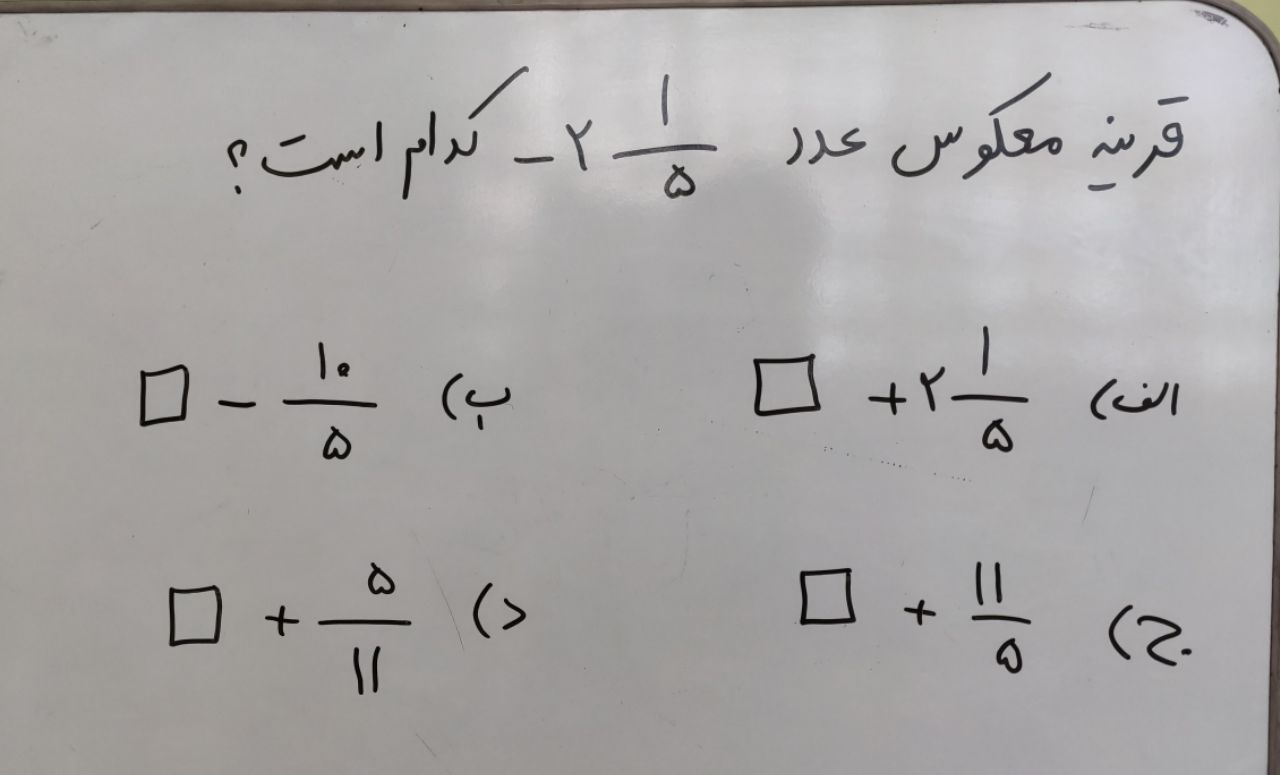 قرینه معکوس عدد -۲ ۱/۵ کدام است؟
الف) +۲ ۱/۵ □ ب) -۱۰/۵ □
ج) +۱۱/۵ □ د) +۵/۱۱ □